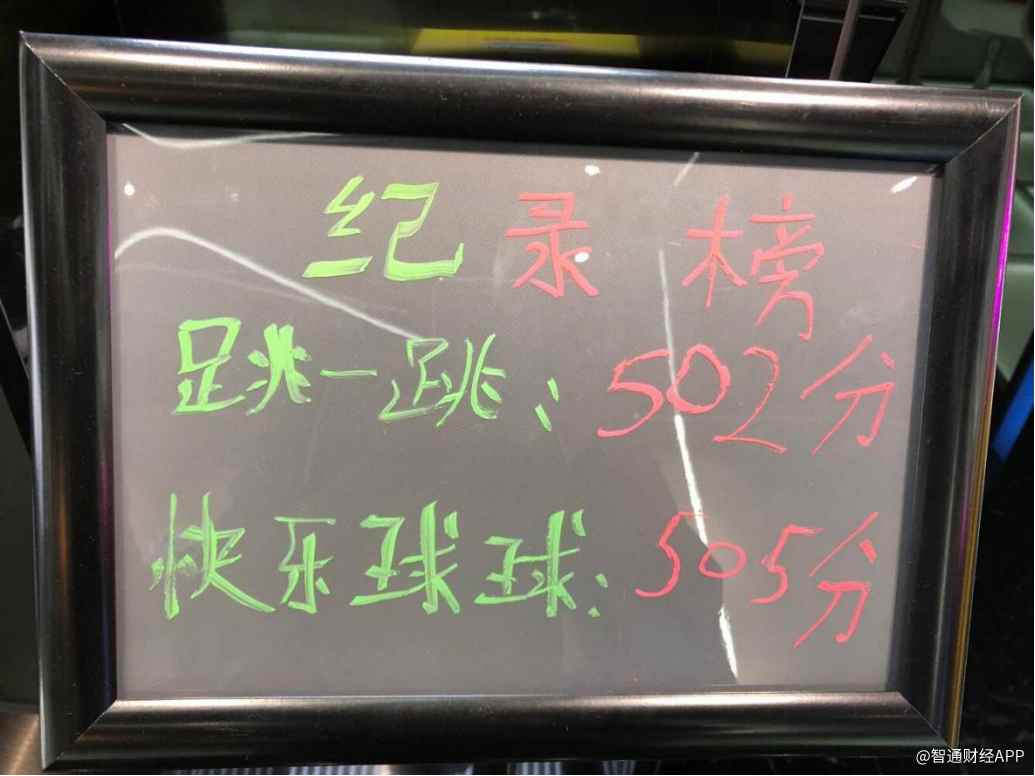 纪录榜
跳一跳：502分
快乐球球：505分
@智通财经APP